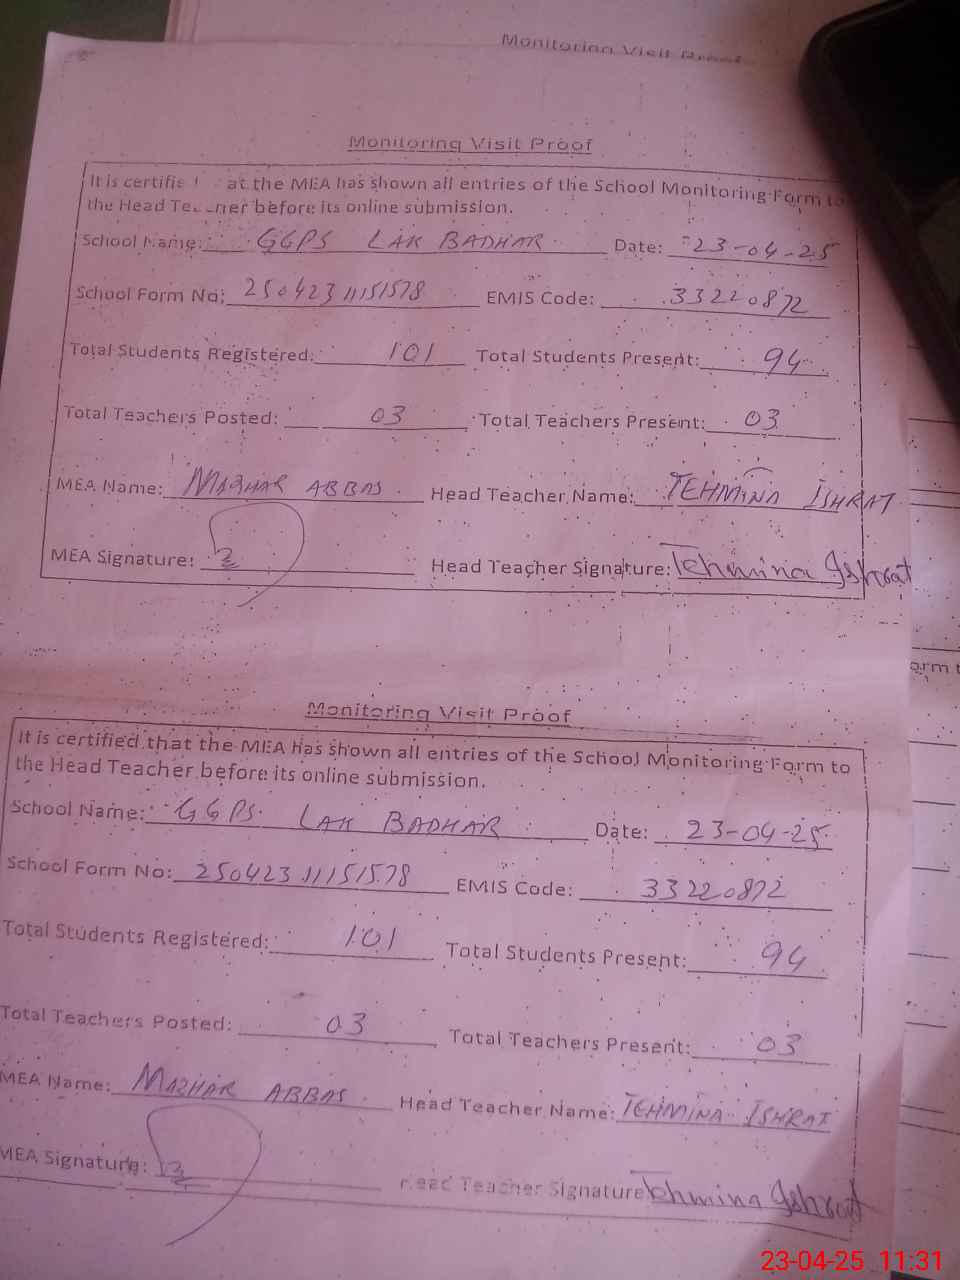 Monitoring Visit Proof
Monitoring Visit Proof
It is certified at the MEA has shown all entries of the School Monitoring Form to
the Head Teacher before its online submission.
School Name: GGPS LAK BADHAR Date: 23-04-25
School Form No: 25042311151578 EMIS Code: 33220872
Total Students Registered: 101 Total Students Present: 94
Total Teachers Posted: 03 Total Teachers Present: 03
MEA Name: MAZHAR ABBAS Head Teacher Name: TEHMINA ISHRAT
MEA Signature: Head Teacher Signature: Tehmina Ishrat
orm t
Monitoring Visit Proof
It is certified that the MEA has shown all entries of the School Monitoring Form to
the Head Teacher before its online submission.
School Name: GGPS LAK BADHAR Date: 23-04-25
School Form No: 25042311151578 EMIS Code: 33220872
Total Students Registered: 101 Total Students Present: 94
Total Teachers Posted: 03 Total Teachers Present: 03
MEA Name: MAZHAR ABBAS Head Teacher Name: TEHMINA ISHRAT
MEA Signature: Head Teacher Signature Tehmina Ishrat
23-04-25 11:31